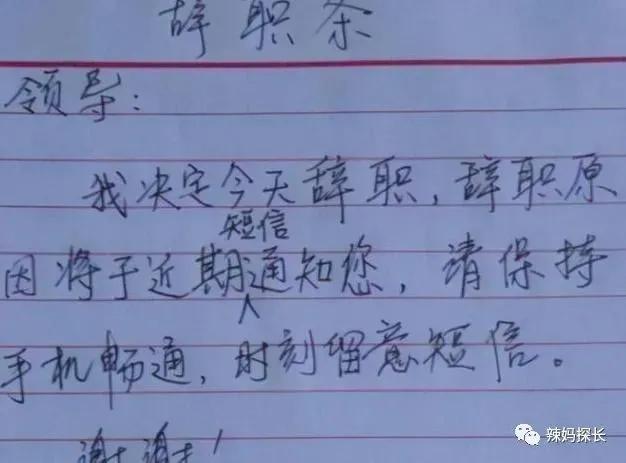 辞职条
领导：
我决定今天辞职，辞职原
短信
因将于近期通知您，请保持
手机畅通，时刻留意短信。
谢谢！
辣妈探长